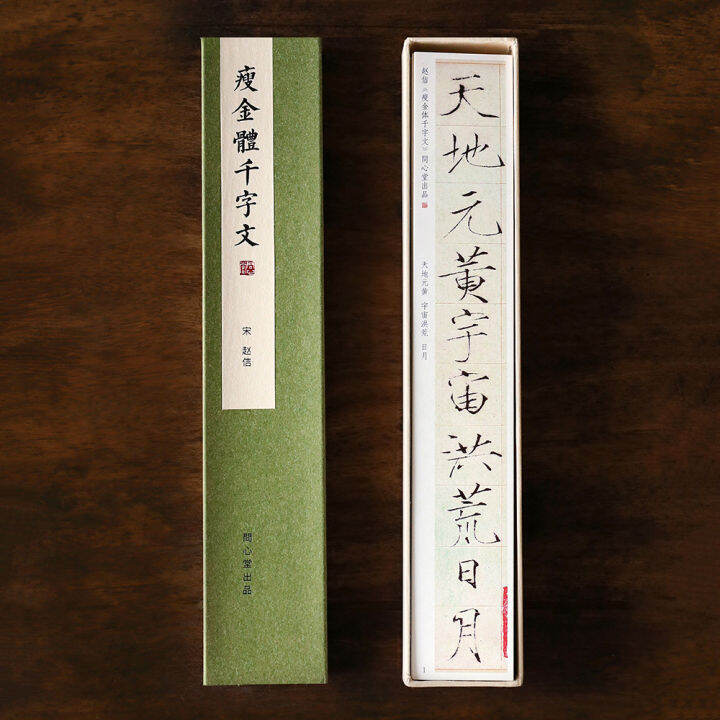 瘦金體千字文
宋 赵佶
問心堂出品
赵佶《瘦金体千字文》問心堂出品
天地元黄 宇宙洪荒 日月
天地元黃宇宙洪荒日月
1